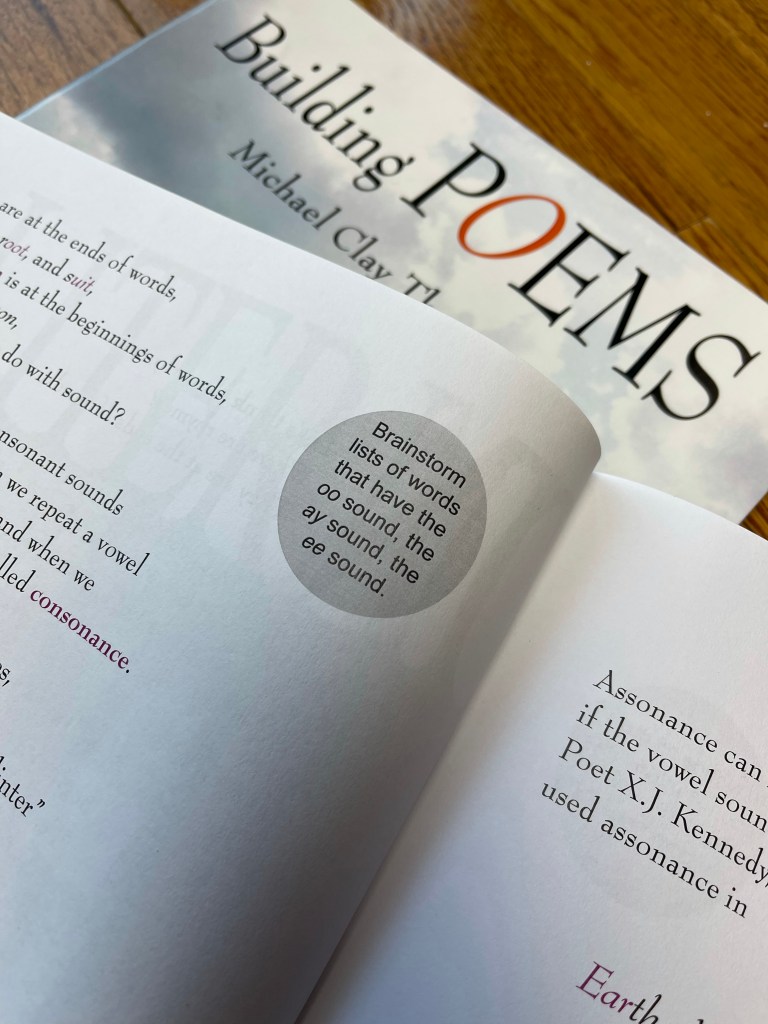 Building POEMS
Michael Clay
are at the ends of words,
root, and suit,
is at the beginnings of words,
do with sound?
sounds
we repeat a vowel
and when we
consonance.
Brainstorm
lists of words
that have the
oo sound, the
ay sound, the
ee sound.
Assonance can
if the vowel
Poet X.J. Kennedy,
used assonance in
Earth